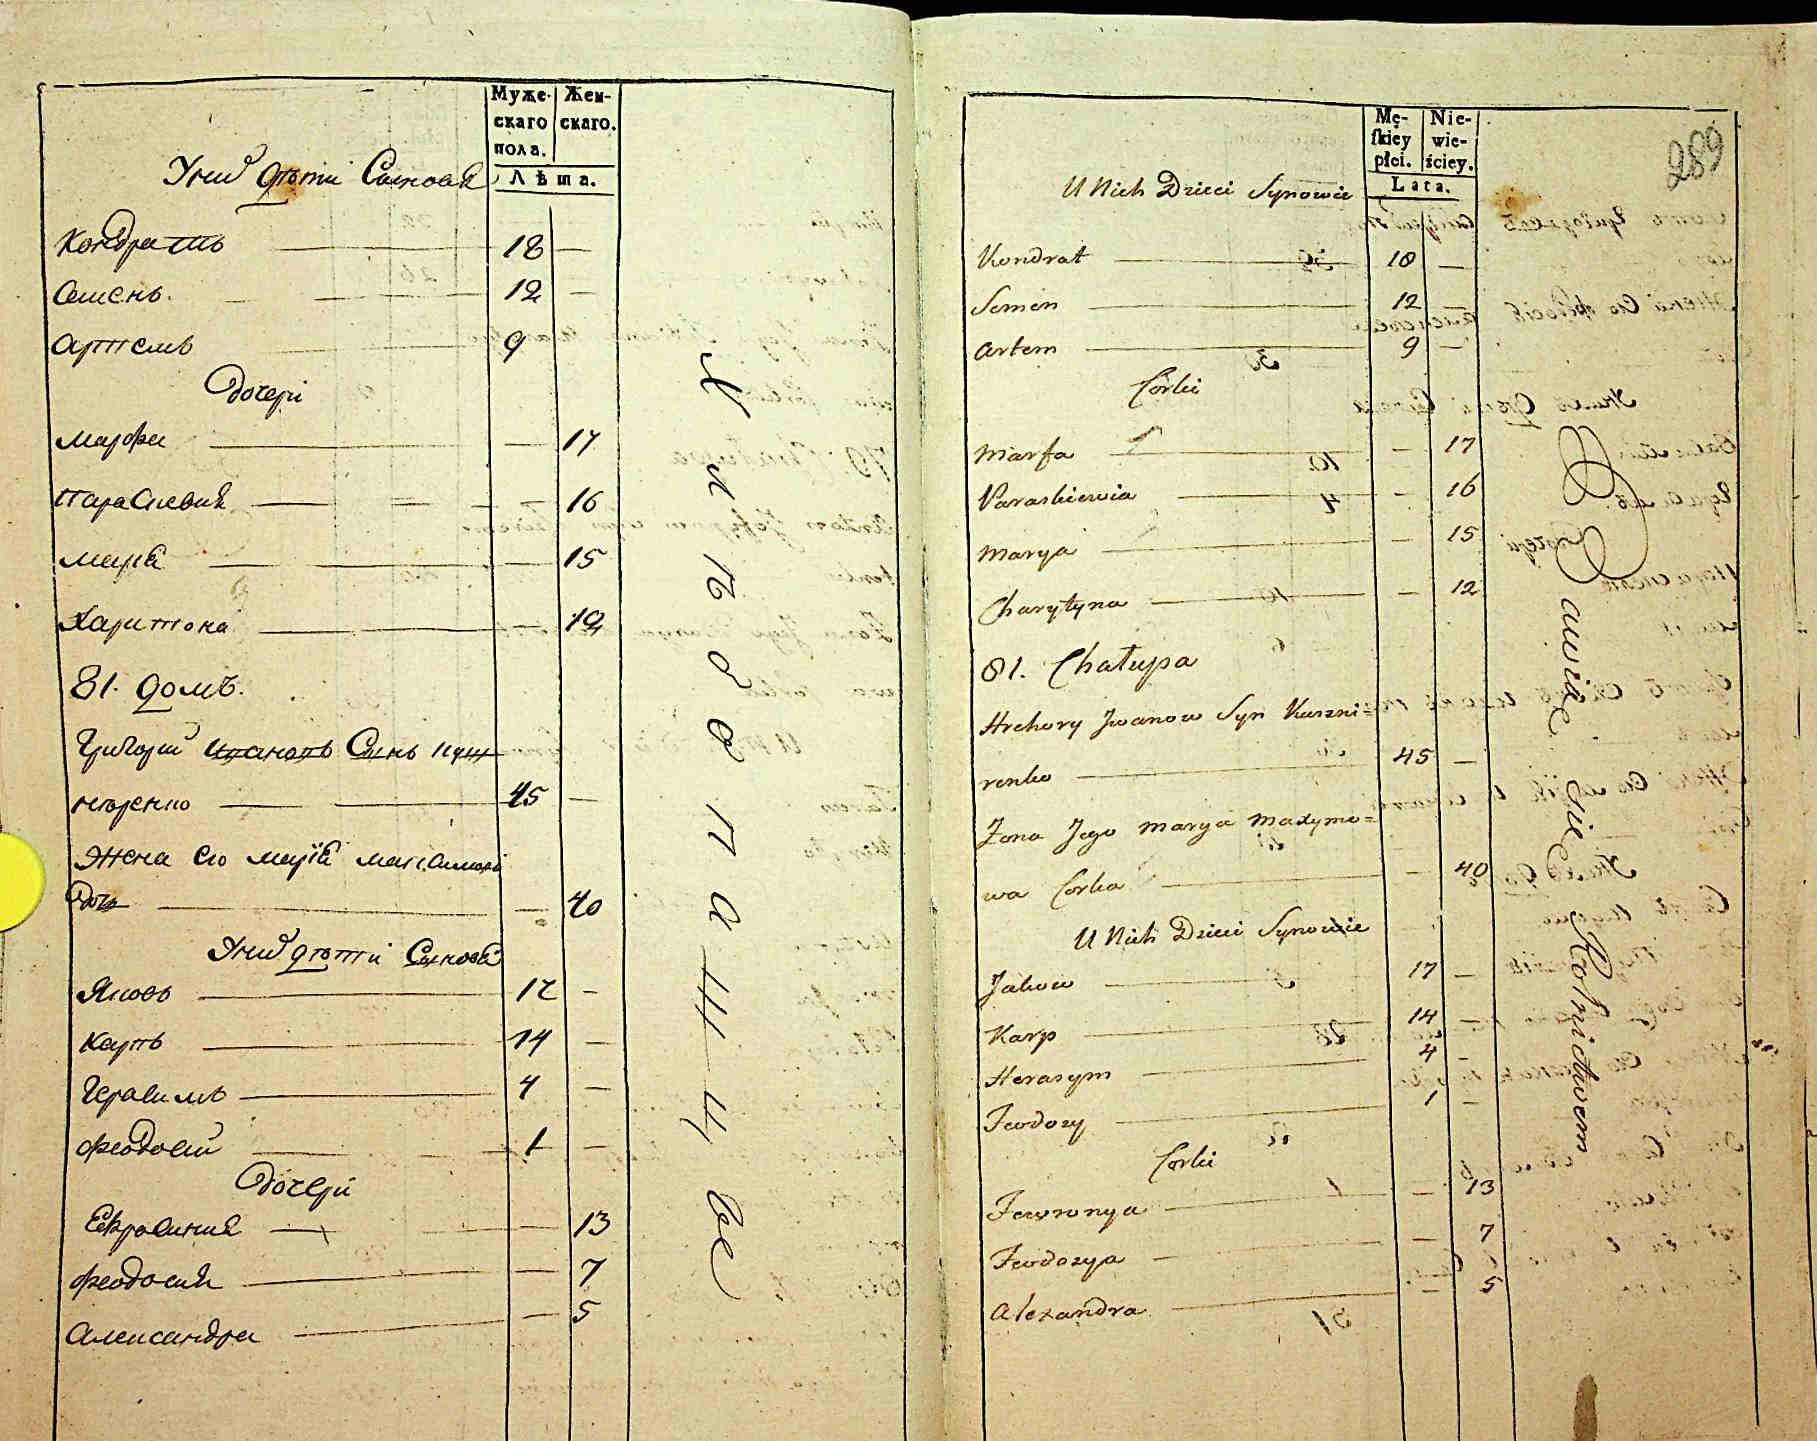 Муже-
скаго
пола.
Жен-
скаго.
Лѣта.
У нихъ дѣти Сыновья
Кондратъ 18 —
Семенъ 12 —
Артемъ 9
Дочери
Марфа — 17
Параскевия — 16
Марія — 15
Харитона — 12
81. домъ.
Григорий Ивановъ Сынъ
45 —
Жена его Марія Максимова
дочь — 40
У нихъ дѣти Сыновья
Яковъ 17 —
Карпъ 14 —
Герасимъ 4 —
Феодосий 1 —
Дочери
Ефросиния — 13
Феодосия — 7
Александра — 5
Хлѣбопашцы
289
Mę-
skiey
płci.
Nie-
wie-
ściey.
Lata.
U Nich Dzieci Synowie
Kondrat 18 —
Semen 12 —
Artem 9 —
Corki
Marfa — 17
Paraskiewia — 16
Marya — 15
Charytyna — 12
81. Chałupa
Hrehory Jwanow Syn Kuszni=
renko 45 —
Zona Jego Marya Maxymo=
wa Corka — 40
U Nich Dzieci Synowie
Jakow 17 —
Karp 14 —
Herasym 4 —
Feodozy 1 —
Corki
Fewronya — 13
Feodozya — 7
Alexandra — 5
Bawiąc się Rolnictwem